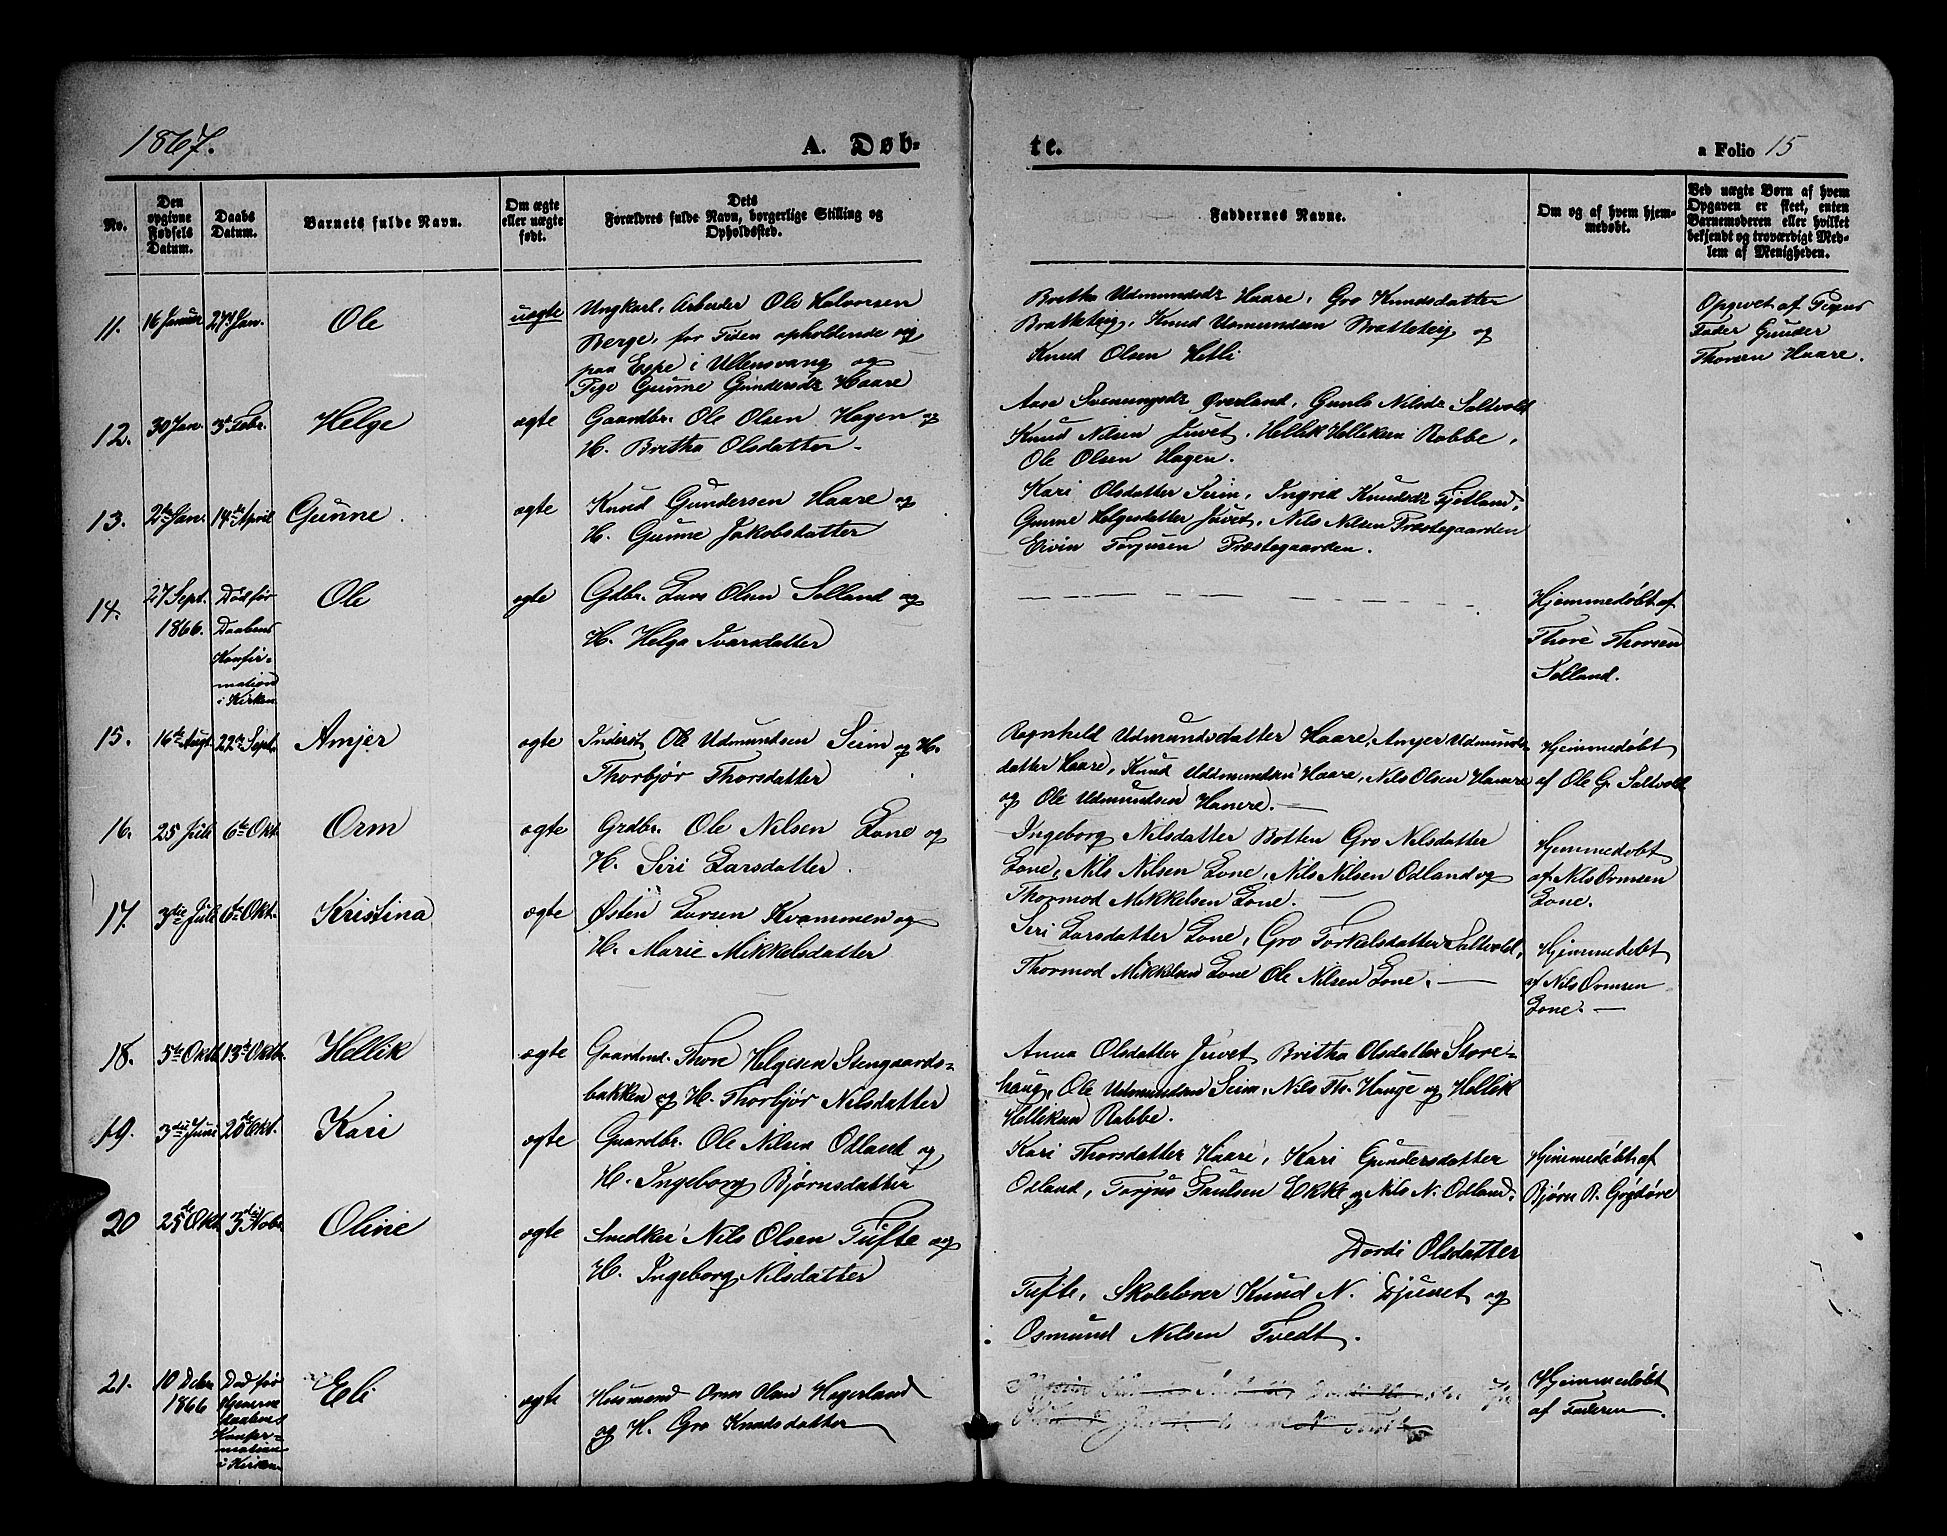 1867.
A. Døb-
te.
a Folio 15
No.
Den
opgivne
Fødsels
Datum.
Daabs
Datum.
Barnets fulde Navn.
Om ægte
eller uægte
født.
Dets
Forældres fulde Navn, borgerlige Stilling og
Opholdssted.
Faddernes Navne.
Om og af hvem hjem-
medøbt.
Ved uægte Børn af hvem
Opgaven er skeet, enten
Barnemoderen eller hvilket
bekjendt og troværdigt Med-
lem af Menigheden.
11. 16 Januar 27d Jan. Ole uægte
Ungkarl, Arbeider Ole Halvorsen
Berge, for Tiden opholdende sig
paa Espe i Ullensvang og
Pige Gunne Gundersdt Haare
Britha Udmundsdt Haare, Gro Knudsdatter
Bratteteig, Knud Udmundsen Bratteteig og
Knud Olsen Hetli
Opgivet af Pigens
Fader Gunder
Thorsen Haare.
12. 30 Jan. 3d Febr. Helge ægte
Gaardbr. Ole Olsen Hagen og
H. Britha Olsdatter
Aasa Sveinungsdt Øverland, Gunla Nilsdt Saltvold
Knud Nilsen Juvet, Hellik Helliksen Rabbe,
Ole Olsen Hagen.
13. 2den Jan. 14de April Gunne ægte
Knud Gundersen Haare og
H. Gunne Jakobsdatter
Kari Olsdatter Seim, Ingrid Knudsdt Fjetland,
Gunne Helgesdatter Juvet, Nils Nilsen Præstegaarden
Eivin Torjusen Præstegaarden.
14. 27 Sept.
1866.
Død før
Daabens
Konfir-
mation
i Kirken
Ole ægte
Gdbr. Lars Olsen Solland og
H. Helga Ivarsdatter
Hjemmedøbt af
Thore Thorsen
Solland.
15. 16de Augt 22de Sept. Amjer ægte
Inderst Ole Udmundsen Seim og H.
Thorbjør Thorsdatter
Ragnheld Udmundsdatter Haare, Amjer Udmunds-
datter Haare, Knud Uddmundsen Haare, Nils Olsen Hamre
og Ole Udmundsen Hamre.
Hjemmedøbt
af Ole G. Saltvold
16. 25 Juli 6te Okt. Orm ægte
Grdbr. Ole Nilsen Lone og
H. Siri Larsdatter.
Ingeborg Nilsdatter Botten Gro Nilsdatter
Lone, Nils Nilsen Lone, Nils Nilsen Odland og
Thormod Mikkelsen Lone.
Hjemmedøbt
af Nils Ormsen
Lone.
17. 3die Juli 6te Okt. Kristina ægte
Østen Larsen Kvammen og
H. Marie Mikkelsdatter
Siri Larsdatter Lone, Gro Torkelsdatter Saltvold,
Thormod Mikkelsen Lone Ole Nilsen Lone.
Hjemmedøbt
af Nils Ormsen
Lone.
18. 5te Oktb. 13d Oktb. Hellik ægte
Gaardmd. Thore Helgesen Stengaards-
bakken og H. Thorbjør Nilsdatter
Anna Olsdatter Juvet Britha Olsdatter Store-
haug, Ole Udmundsen Seim, Nils Th. Hauge og Hellik
Helliksen Rabbe.
19. 3die Juni 20de Okt. Kari ægte
Gaardbr. Ole Nilsen Odland og
H. Ingeborg Bjørnsdatter
Kari Thorsdatter Haare, Kari Gundersdatter
Odland, Torjus Paulsen Ekke og Nils N. Odland.
Hjemmedøbt af
Bjørn B. Grydøre
20 25de Okt. 3die Nob. Oline ægte
Snedker Nils Olsen Tufte og
H. Ingeborg Nilsdatter
Dordi Olsdatter
Tufte, Skolelærer Knud N. Djuvet og
Osmund Nilsen Tvedt.
21. 10 Debr
1866
Død før
Daabens
Konfir-
mation
i Kirken
Eli ægte
Husmand Orm Olsen Hegerland
og H. Gro Knudsdatter
Hjemmedøbt
af Faderen